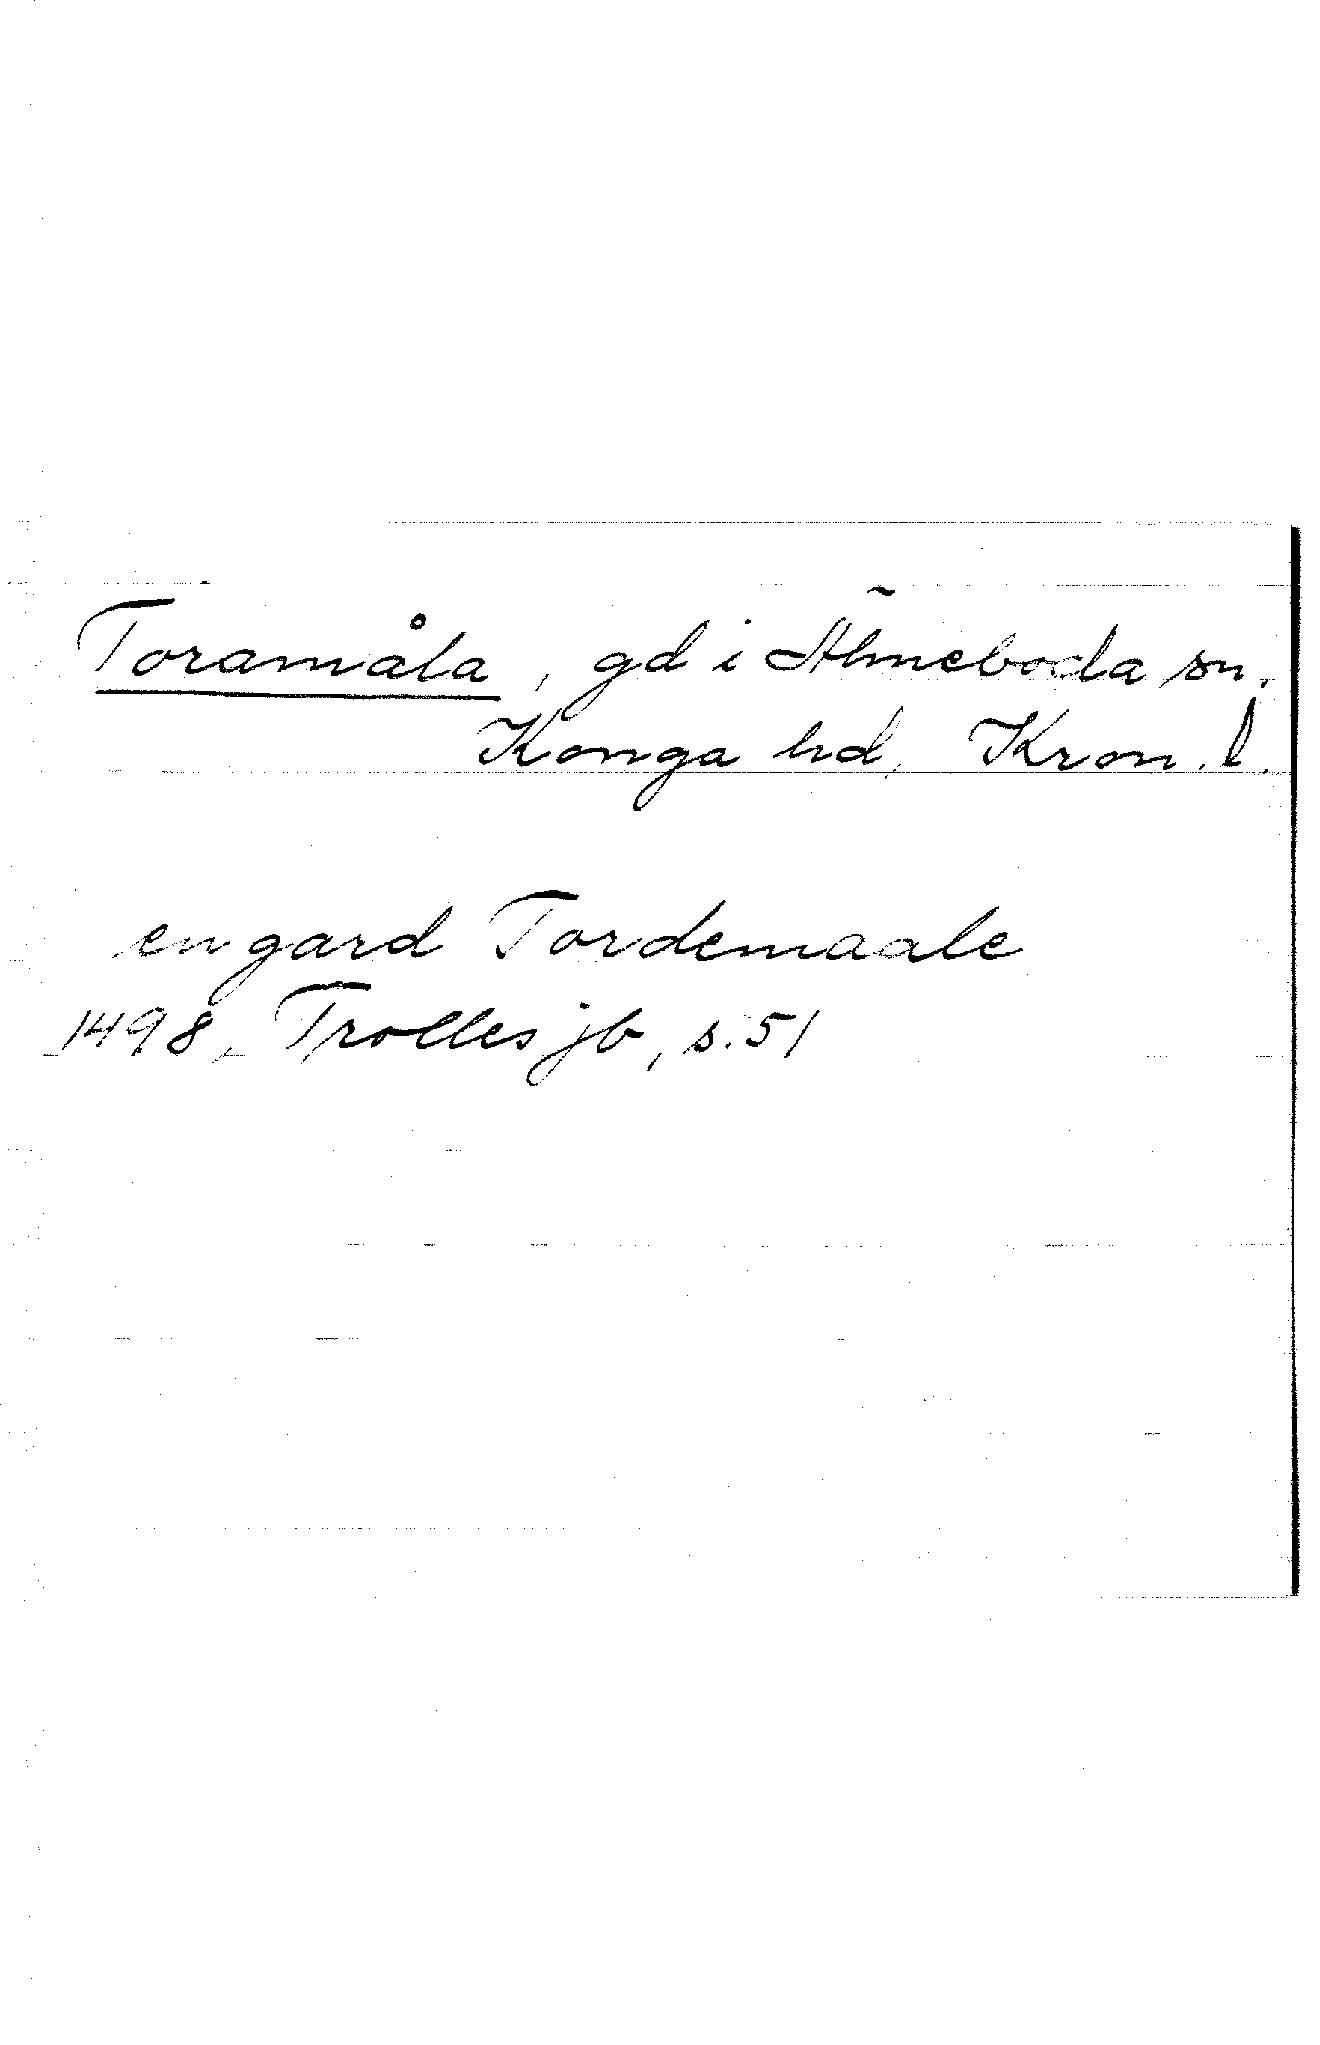 Toramåla, gd i Älmeboda sn.
Konga hd, Kron. l.
en gard Tordemaale
1498, Trolles jb, s. 51